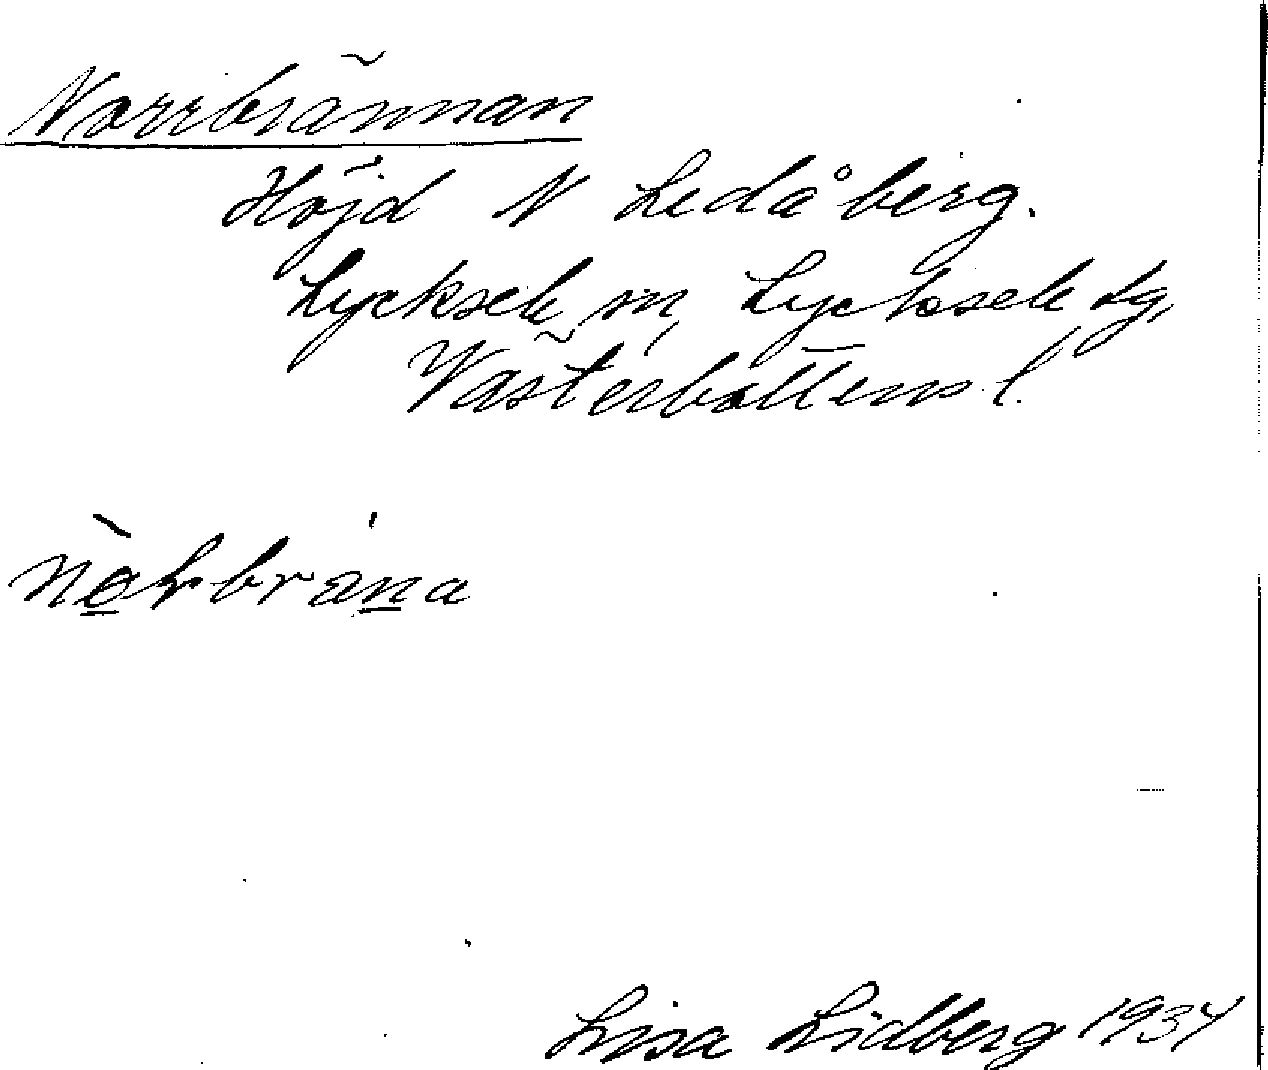 Norrbrännan
Höjd N Ledåberg.
Lycksele m, Lycksele lg,
Västerbottens l.
nòrbrana
Lisa Lidberg 1934